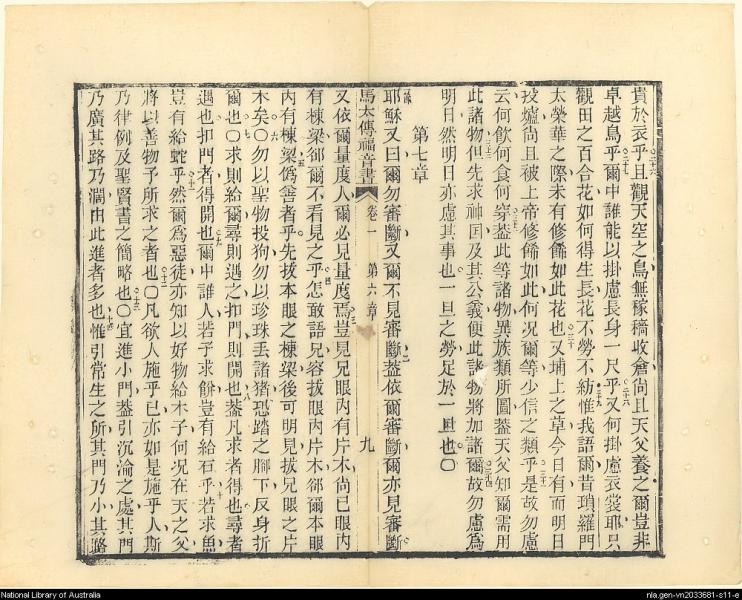 貴於衣乎且觀天空之鳥無稼穡收倉尚且天父養之爾豈非
卓越鳥乎爾中誰能以掛慮長身一尺乎又何掛慮衣裳耶只
觀田之百合花如何得生長花不勞不紡惟我語爾昔瑣羅門
太榮華之際未有修餙如此花也又埔上之草今日有而明日
投爐尚且被上帝修餙如此何况爾等少信之類乎是故勿慮
云何飲何食何穿葢此等諸物異族類所圖葢天父知爾需用
此諸物但先求神囯及其公義便此諸物將加諸爾故勿慮為
明日然明日亦慮其事也一旦之勞足於一旦也〇
第七章
耶穌又曰爾勿審斷又爾不見審斷葢依爾審斷爾亦見審斷
馬太傳福音書
卷一 第六章
九
又依爾量度人爾必見量度焉豈見兄眼內有片木尚已眼內
有棟梁郤爾不看見之乎怎敢語兄容拔眼內片木郤爾本眼
內有棟梁僞善者乎先拔本眼之棟梁後可明見拔兄眼之片
木矣〇勿以聖物投狗勿以珍珠丟諸猪恐踏之腳下反身折
爾也〇求則給爾尋則遇之扣門則開也葢凡求者得也尋者
遇也扣門者得開也爾中誰人若子求餅豈有給石乎若求魚
豈有給蛇乎然爾為惡徒亦知以好物給本子何况在天之父
將以善物予所求之者也〇凡欲人施乎已亦如是施乎人斯
乃律例及聖賢書之簡略也〇宜進小門葢引沉淪之處其門
乃廣其路乃濶由此進者多也惟引常生之所其門乃小其路
National Library of Australia
nla.gen-vn2033681-s11-e